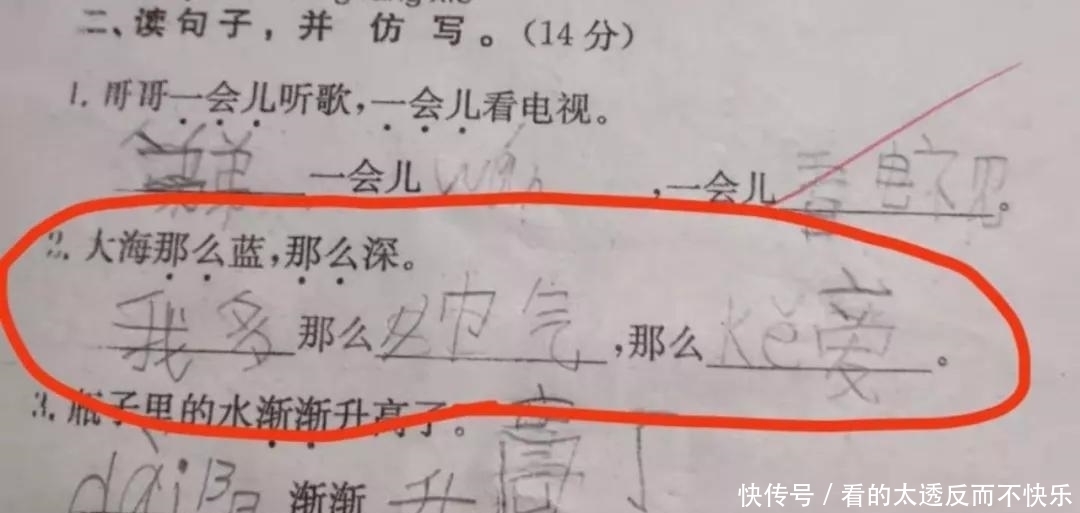 二、读句子，并 仿 写。(14分)
1. 哥哥一会儿听歌，一会儿看电视。
弟弟 一会儿 wán ，一会儿 看电视。
2. 大海那么蓝，那么深。
我多 那么 帅气，那么 kě爱。
3. 瓶子里的水渐渐升高了。
渐渐 升高了
快传号 / 看的太透反而不快乐